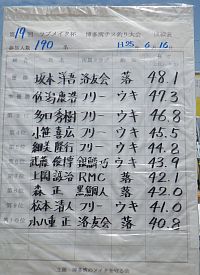 第19回 ラブメイク杯 博多湾チヌ釣り大会 成績表
参加人数 190名 H25年6月16日
坂本洋吾 洛友会 落 48.1
佐湯慶浩 フリー ウキ 47.3
多田秀樹 フリー ウキ 46.8
第4位 小笹喜広 フリー ウキ 45.5
細美隆行 フリー ウキ 44.8
武藤俊博 ウキ 43.9
上岡誠治 RMC 落 42.1
森 正 黒鯛人 落 42.0
松本清人 フリー ウキ 41.0
第10位 小八重正 洛友会 落 40.8
主催 博多湾のメイクを守る会